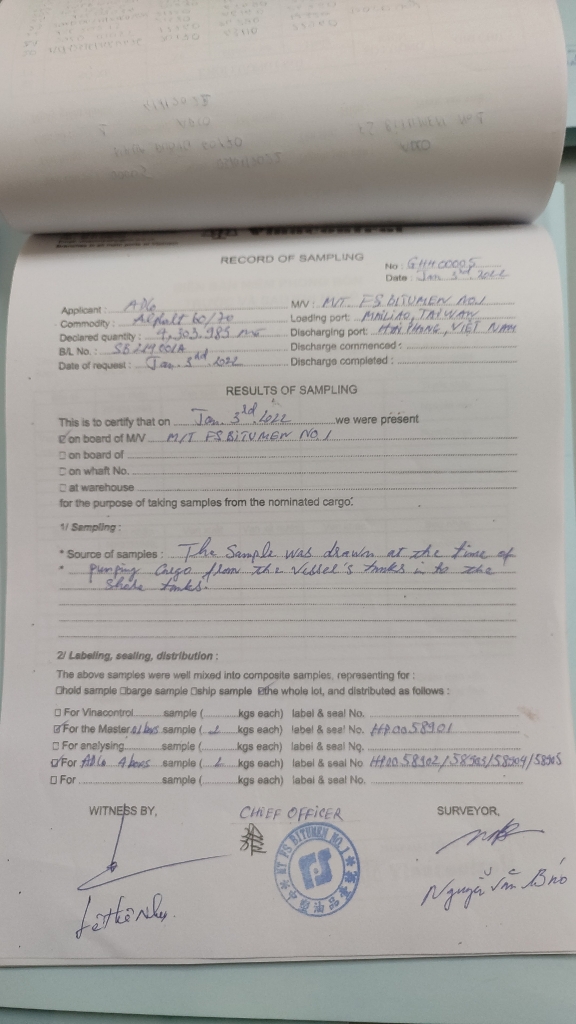 RECORD OF SAMPLING
No : GHH00005
Date : Jan 3rd, 2022
Applicant : ADCo
Commodity : Asphalt 60/70
Declared quantity : 4,303.985 MT
B/L No. :
Date of request : Jan. 3rd, 2022
M/V : M/T. FS BITUMEN NO.1
Loading port : MAILIAO, TAIWAN
Discharging port : HAI PHONG, VIET NAM
Discharge commenced :
Discharge completed :
RESULTS OF SAMPLING
This is to certify that on Jan. 3rd, 2022 we were present
on board of M/V M/T FS BITUMEN NO.1
on board of
on whaft No.
at warehouse
for the purpose of taking samples from the nominated cargo.
1/ Sampling :
* Source of samples : The Sample was drawn at the time of
* pumping Cargo from the Vessel's tanks in to the
Shore tanks.
2/ Labeling, sealing, distribution :
The above samples were well mixed into composite samples, representing for :
hold sample barge sample ship sample the whole lot, and distributed as follows :
For Vinacontrol sample ( kgs each) label & seal No.
For the Master sample ( kgs each) label & seal No HP0058901
For analysing sample ( kgs each) label & seal No.
For ADCo sample ( kgs each) label & seal No HP0058902/58903/58904/58905
For sample ( kgs each) label & seal No.
WITNESS BY,
CHIEF OFFICER
SURVEYOR,
MT FS BITUMEN NO.1
FS
Nguyễn Văn Bảo